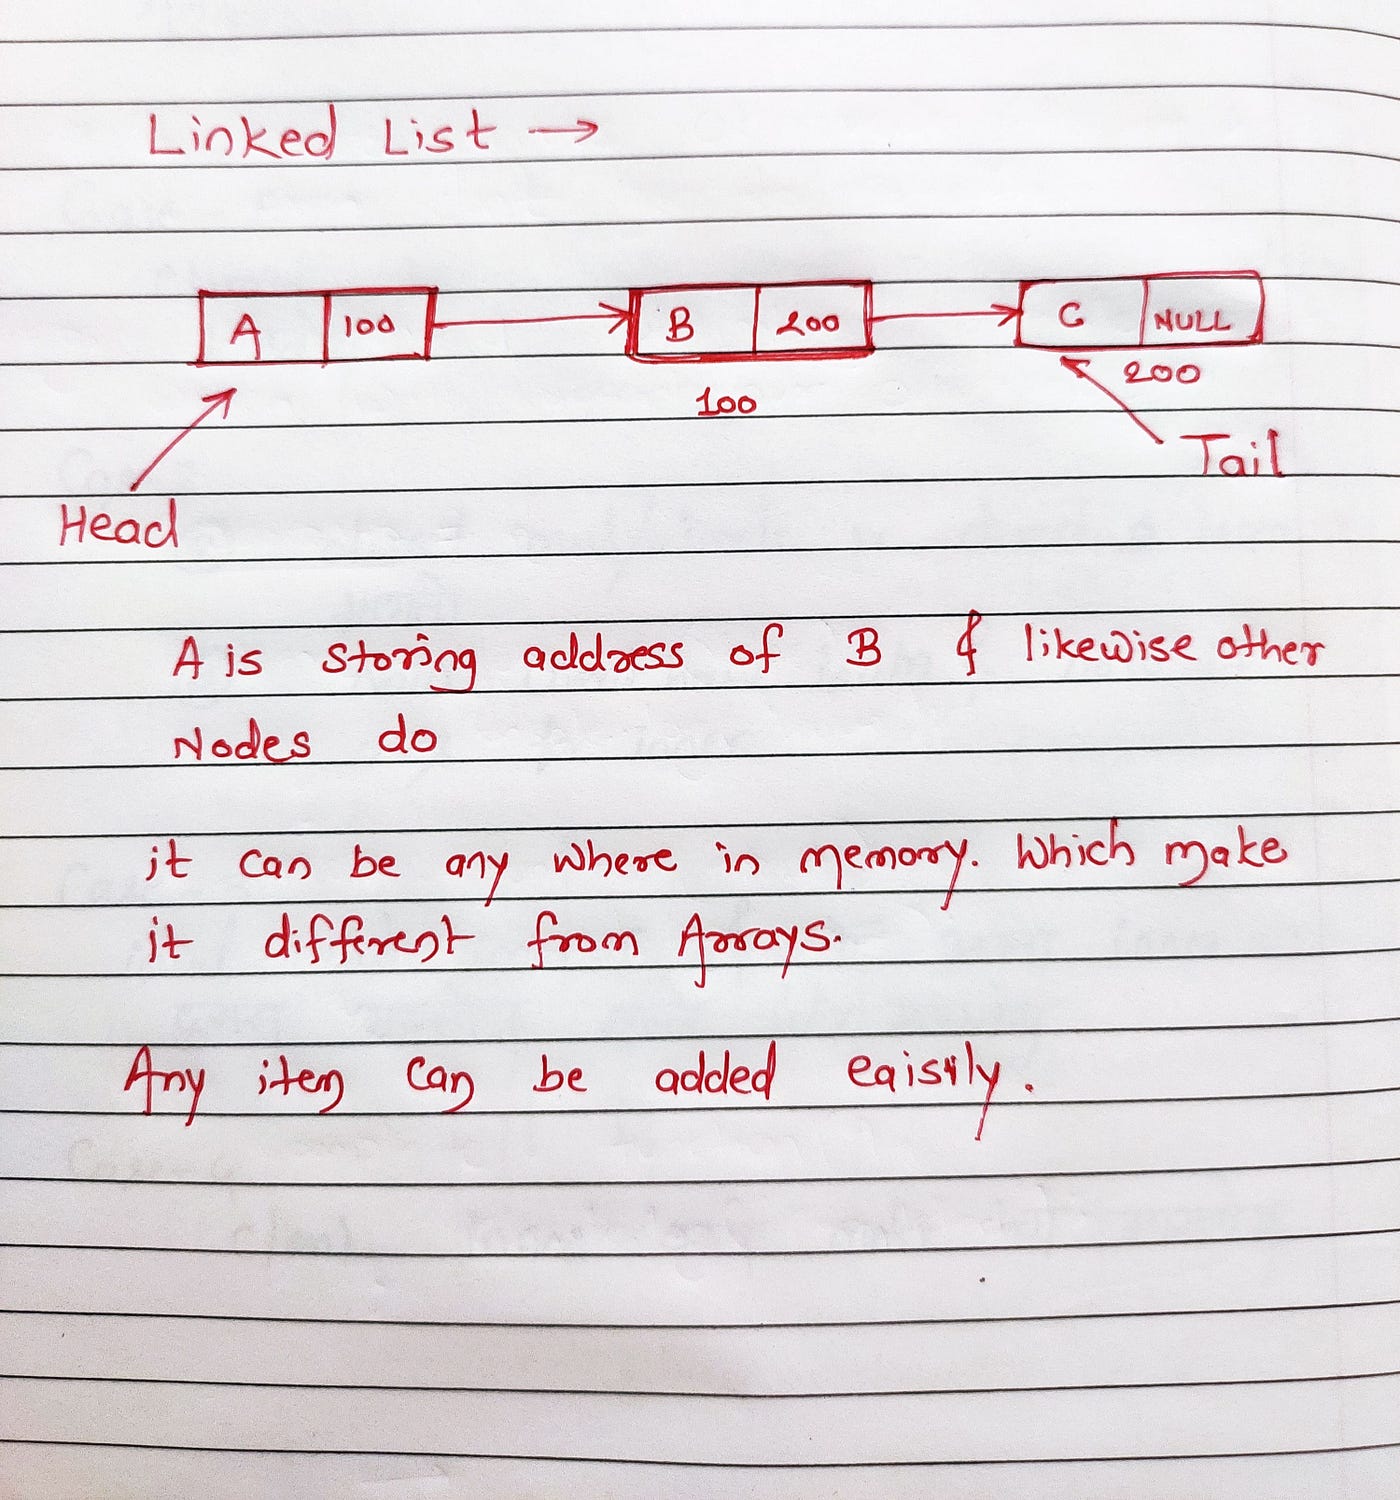 Linked List →
A 100 B 200 C NULL
200
100
Tail
Head
A is storing address of B & likewise other
Nodes do
it can be any where in memory. Which make
it different from Arrays.
Any item can be added eaisily.